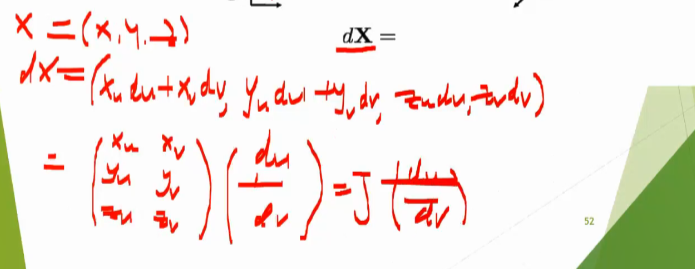 X = (x, y, z)
dX =
dX = (x_u du + x_v dv, y_u du + y_v dv, z_u du, z_v dv)
= (x_u x_v
y_u y_v
z_u z_v) (du
dv) = J (du
dv)
52